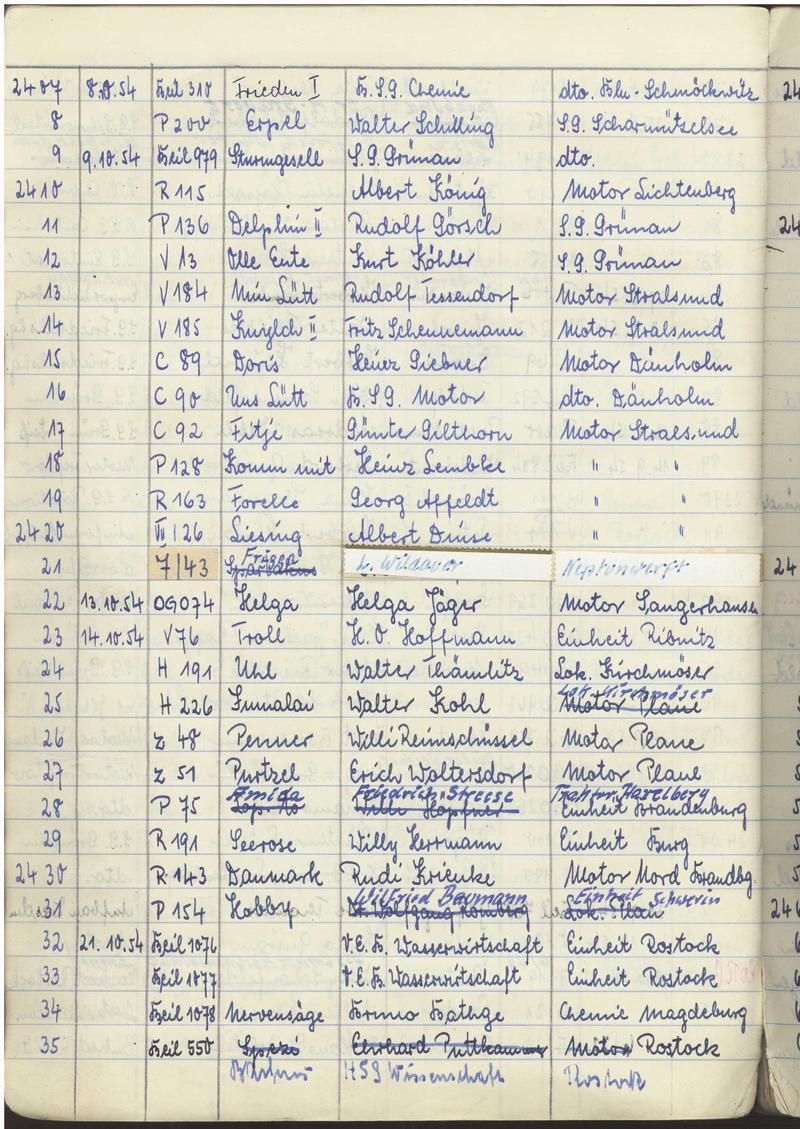 2407 8.10.54 Beil 310 Frieden I B.S.G. Chemie dto. Bln.-Schmöckwitz 24
8 P 200 Erpell Walter Schilling S.G. Scharmützelsee
9 9.10.54 Beil 979 Sturmgesell S.G. Grünau dto.
2410 R 115 Albert König Motor Lichtenberg
11 P 136 Delphin II Rudolf Görsch S.G. Grünau 24
12 V 13 Olle Ente Kurt Köhler S.G. Grünau
13 V 184 Min Lütt Rudolf Tessendorf Motor Stralsund
14 V 185 II Fritz Schennemann Motor Stralsund
15 C 89 Doris Heinz Giebner Motor Dänholm
16 C 90 Uns Lütt B.S.G. Motor dto. Dänholm
17 C 92 Fitje Günter Gilthorn Motor Stralsund
18 P 128 Komm mit Heinz Lembke " "
19 R 163 Forelle Georg Affeldt " "
2420 VII/26 Liesing Albert Dinse " "
Frigga
21 7/43 Spartakus L. Wildauer Neptunwerft 24
22 13.10.54 OG074 Helga Helga Jäger Motor Sangerhausen
23 14.10.54 V76 Troll H.O. Hoffmann Einheit Ribnitz
24 H 191 Uhl Walter Thämlitz Lok. Kirchmöser
Lok. Kirchmöser
25 H 226 Walter Kohl Motor Plaue
26 Z 48 Penner Willi Reimschüssel Motor Plaue
27 Z 51 Purtzel Erich Woltersdorf Motor Plaue
Armida Friedrich Streese Traktor Havelberg
28 P 75 Willi Höpfner Einheit Brandenburg
29 R 191 Seerose Willy Herrmann Einheit Burg
2430 R 143 Danmark Rudi Krienke Motor Nord Brandbg.
Wilfried Baumann Einheit Schwerin
31 P 154 Hobby Dr. Wolfgang Romberg Lok. 246
32 21.10.54 Beil 1076 V.E.B. Wasserwirtschaft Einheit Rostock
33 Beil 1077 V.E.B. Wasserwirtschaft Einheit Rostock
34 Beil 1078 Nervensäge Bruno Bathge Chemie Magdeburg
35 Beil 550 Spezi Ehrhard Puttkammer Motor Rostock
HSG Wissenschaft Rostock